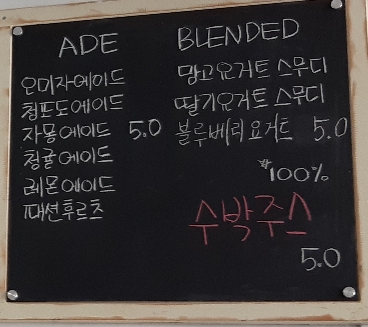 ADE
오미자에이드
청포도에이드
자몽에이드 5.0
청귤에이드
레몬에이드
패션후르츠
BLENDED
망고요거트 스무디
딸기요거트 스무디
블루베리요거트 5.0
*100%
수박주스
5.0